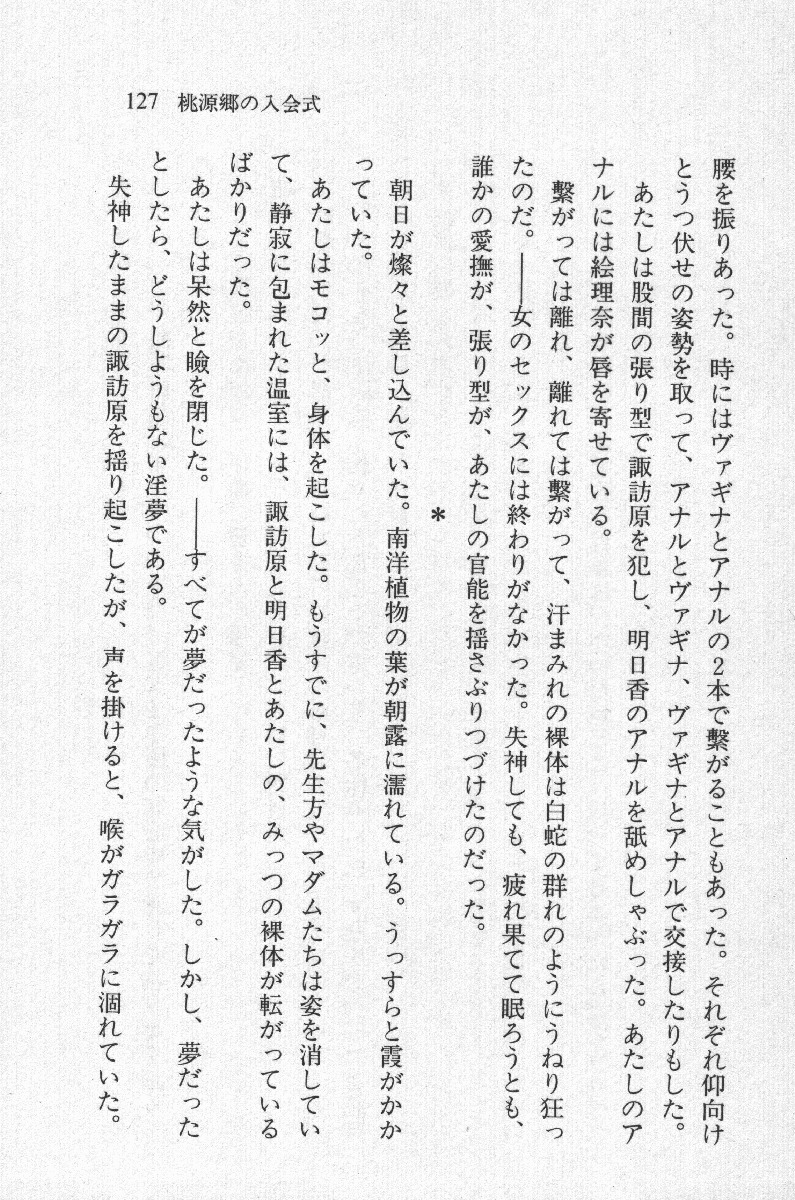 127 桃源郷の入会式
腰を振りあった。時にはヴァギナとアナルの2本で繋がることもあった。それぞれ仰向け
とうつ伏せの姿勢を取って、アナルとヴァギナ、ヴァギナとアナルで交接したりもした。
あたしは股間の張り型で諏訪原を犯し、明日香のアナルを舐めしゃぶった。あたしのア
ナルには絵理奈が唇を寄せている。
繋がっては離れ、離れては繋がって、汗まみれの裸体は白蛇の群れのようにうねり狂っ
たのだ。――女のセックスには終わりがなかった。失神しても、疲れ果てて眠ろうとも、
誰かの愛撫が、張り型が、あたしの官能を揺さぶりつづけたのだった。
＊
朝日が燦々と差し込んでいた。南洋植物の葉が朝露に濡れている。うっすらと霞がかか
っていた。
あたしはモコッと、身体を起こした。もうすでに、先生方やマダムたちは姿を消してい
て、静寂に包まれた温室には、諏訪原と明日香とあたしの、みっつの裸体が転がっている
ばかりだった。
あたしは呆然と瞼を閉じた。――すべてが夢だったような気がした。しかし、夢だった
としたら、どうしようもない淫夢である。
失神したままの諏訪原を揺り起こしたが、声を掛けると、喉がガラガラに涸れていた。